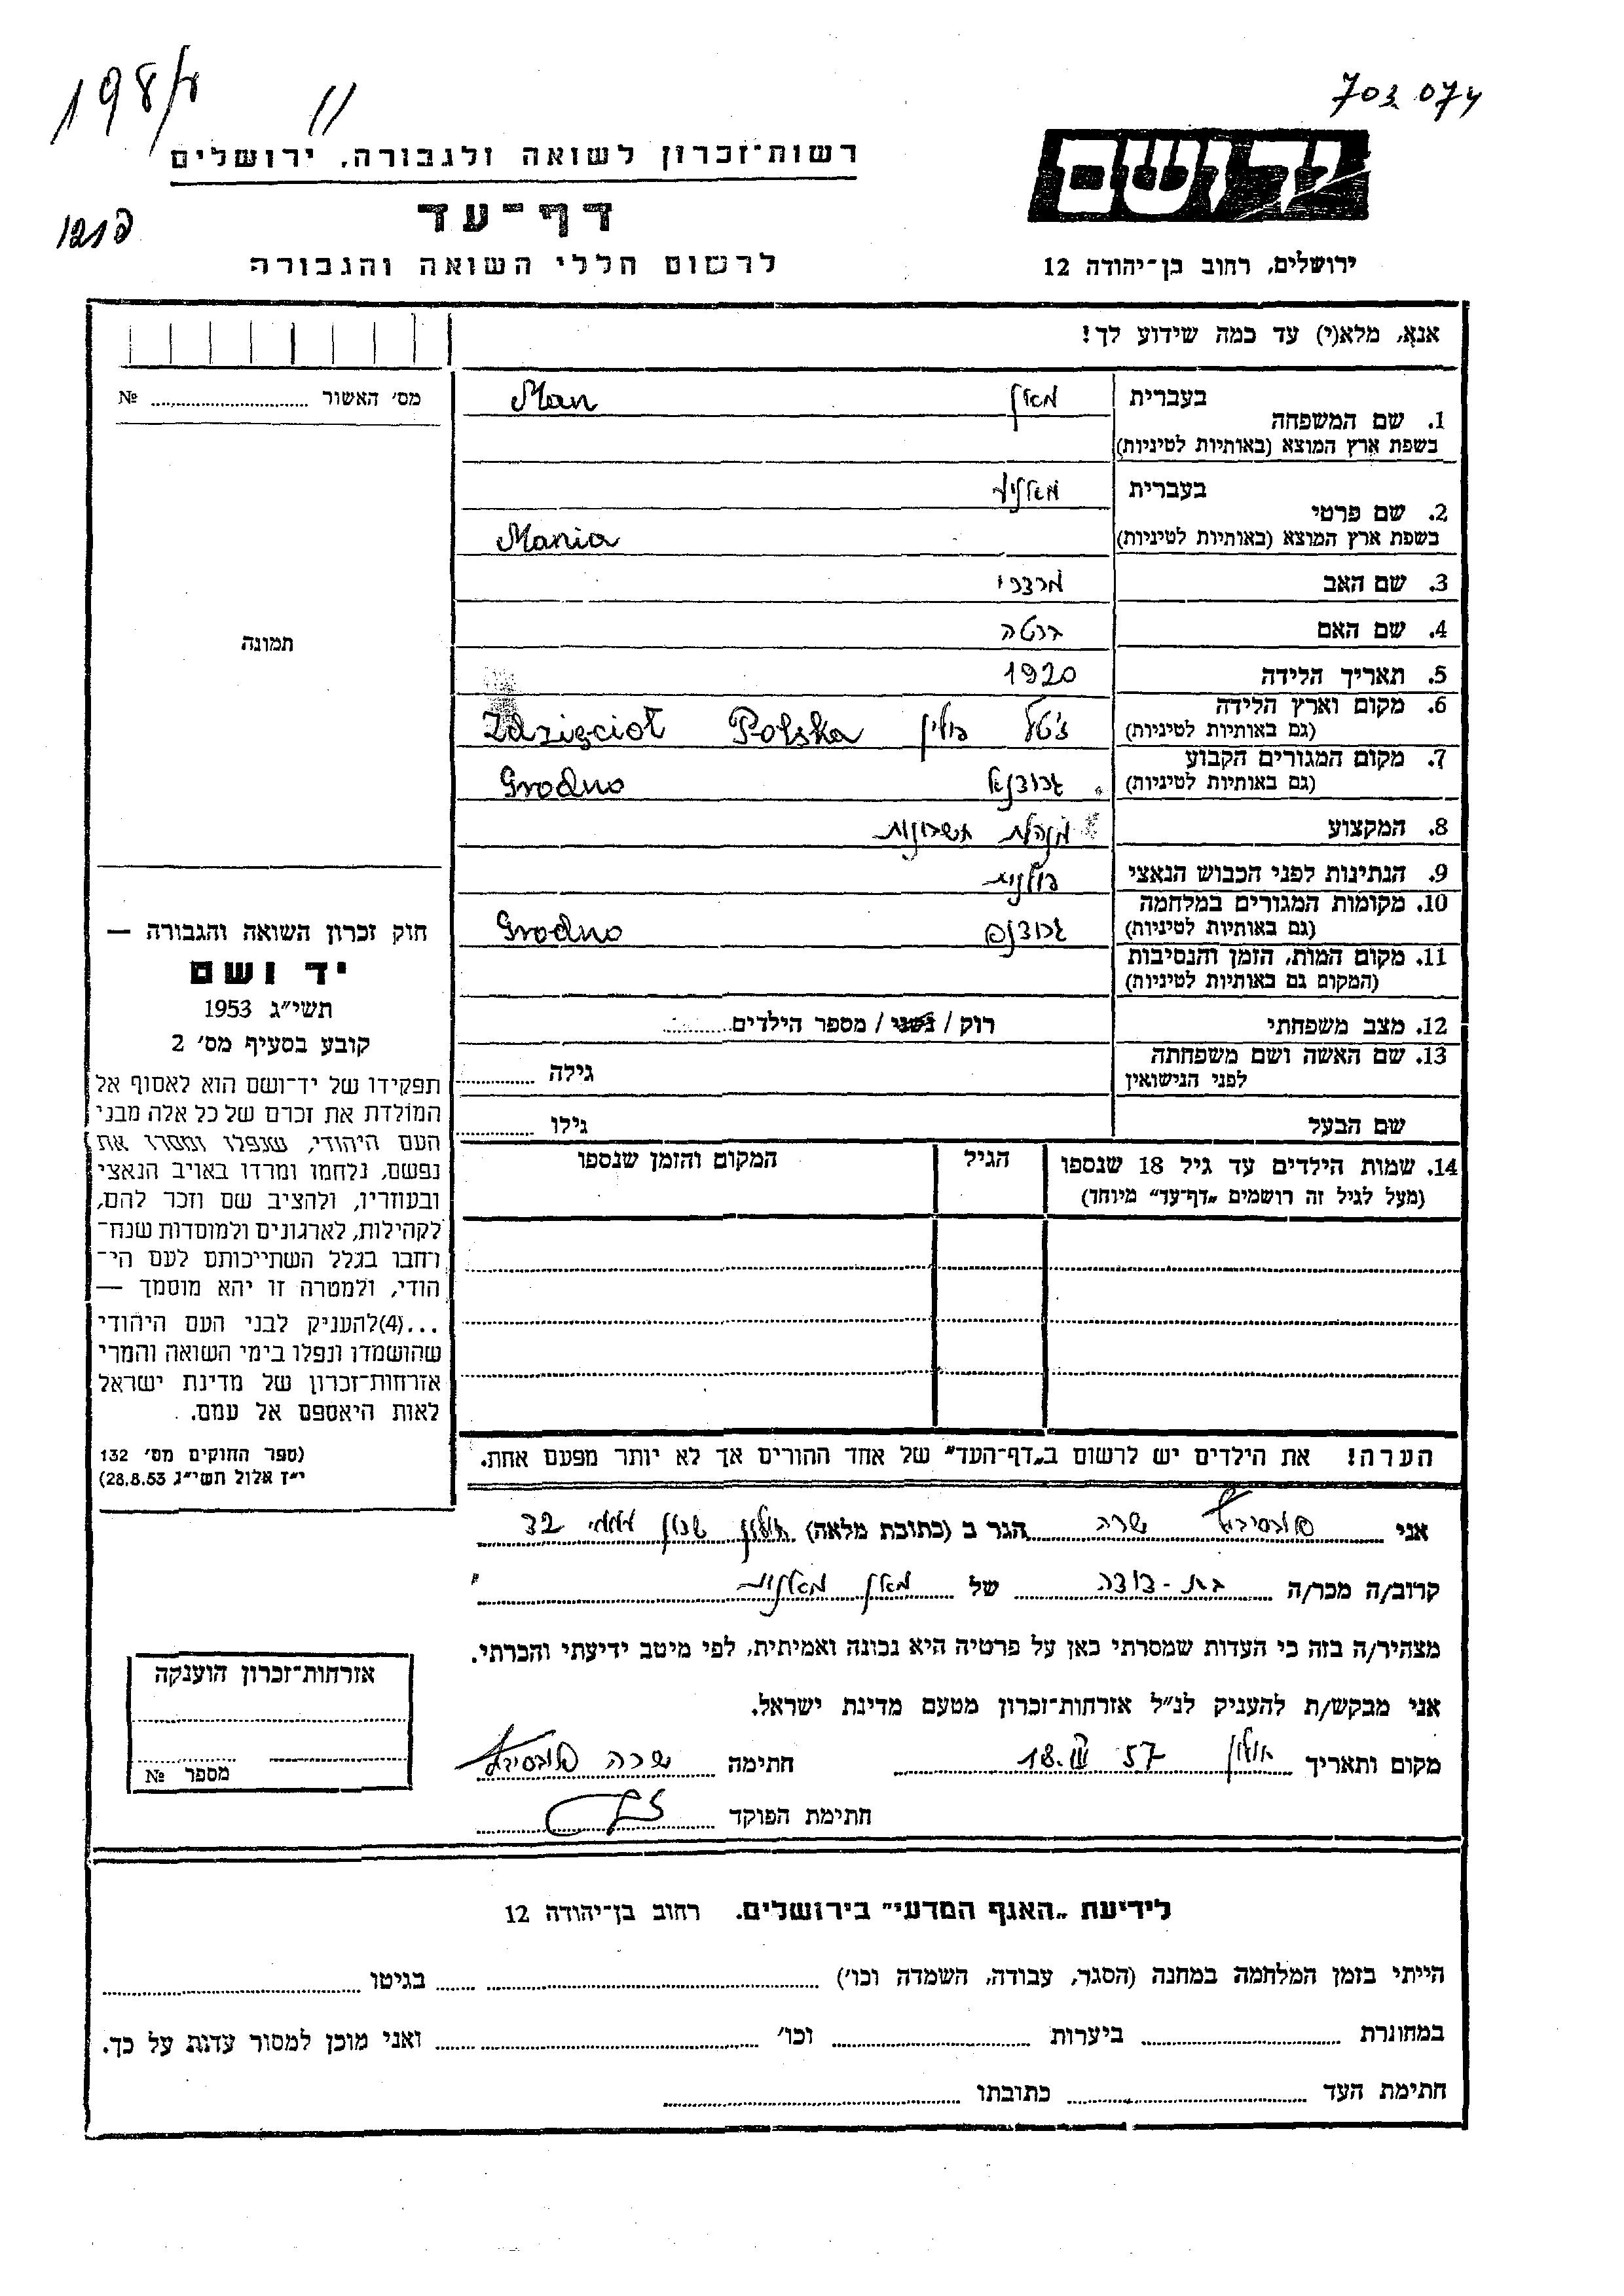 198/
703 074
רשות־זכרון לשואה ולגבורה, ירושלים
יד ושם
דף־עד
לרשום חללי השואה והגבורה
ירושלים, רחוב בן־יהודה 12
אנא, מלא(י) עד כמה שידוע לך!
מס' האשור № 
בעברית מאן Man
1. שם המשפחה
בשפת ארץ המוצא (באותיות לטיניות)
בעברית
2. שם פרטי
בשפת ארץ המוצא (באותיות לטיניות) Mania
3. שם האב מרדכי
4. שם האם ברטה
5. תאריך הלידה 1920
6. מקום וארץ הלידה
(גם באותיות לטיניות) ז'טל פולין Polska Zdzięcioł
7. מקום המגורים הקבוע
(גם באותיות לטיניות) Grodno
8. המקצוע מנהלת חשבונות
9. הנתינות לפני הכבוש הנאצי פולנית
10. מקומות המגורים במלחמה
(גם באותיות לטיניות) Grodno
11. מקום המות, הזמן והנסיבות
(המקום גם באותיות לטיניות)
12. מצב משפחתי רוק / נשוי / מספר הילדים
13. שם האשה ושם משפחתה
לפני הנישואין גילה
שם הבעל גילו
14. שמות הילדים עד גיל 18 שנספו הגיל המקום והזמן שנספו
(מעל לגיל זה רושמים „דף־עד" מיוחד)
הערה! את הילדים יש לרשום ב„דף־העד" של אחד ההורים אך לא יותר מפעם אחת.
תמונה
חוק זכרון השואה והגבורה —
יד ושם
תשי"ג 1953
קובע בסעיף מס' 2
תפקידו של יד־ושם הוא לאסוף אל
המולדת את זכרם של כל אלה מבני
העם היהודי, שנפלו ומסרו את
נפשם, נלחמו ומרדו באויב הנאצי
ובעוזריו, ולהציב שם וזכר להם,
לקהילות, לארגונים ולמוסדות שנח־
רחבו בגלל השתייכותם לעם הי־
הודי, ולמטרה זו יהא מוסמך —
...(4)להעניק לבני העם היהודי
שהושמדו ונפלו בימי השואה והמרי
אזרחות־זכרון של מדינת ישראל
לאות היאספם אל עמם.
(ספר החוקים מס' 132
י"ז אלול תשי"ג 28.8.53)
אני שרה הגר ב (כתובת מלאה) חולון שכון 32
קרוב/ה מכר/ה בת-דודה של מאן
מצהיר/ה בזה כי העדות שמסרתי כאן על פרטיה היא נכונה ואמיתית, לפי מיטב ידיעתי והכרתי.
אני מבקש/ת להעניק לנ"ל אזרחות־זכרון מטעם מדינת ישראל.
מקום ותאריך חולון 18.III 57 חתימה שרה
חתימת הפוקד
אזרחות־זכרון הוענקה
מספר №
לידיעת „האגף המדעי" בירושלים. רחוב בן־יהודה 12
הייתי בזמן המלחמה במחנה (הסגר, עבודה, השמדה וכו') בגיטו
במחתרת ביערות וכו' ואני מוכן למסור עדות על כך.
חתימת העד כתובתו